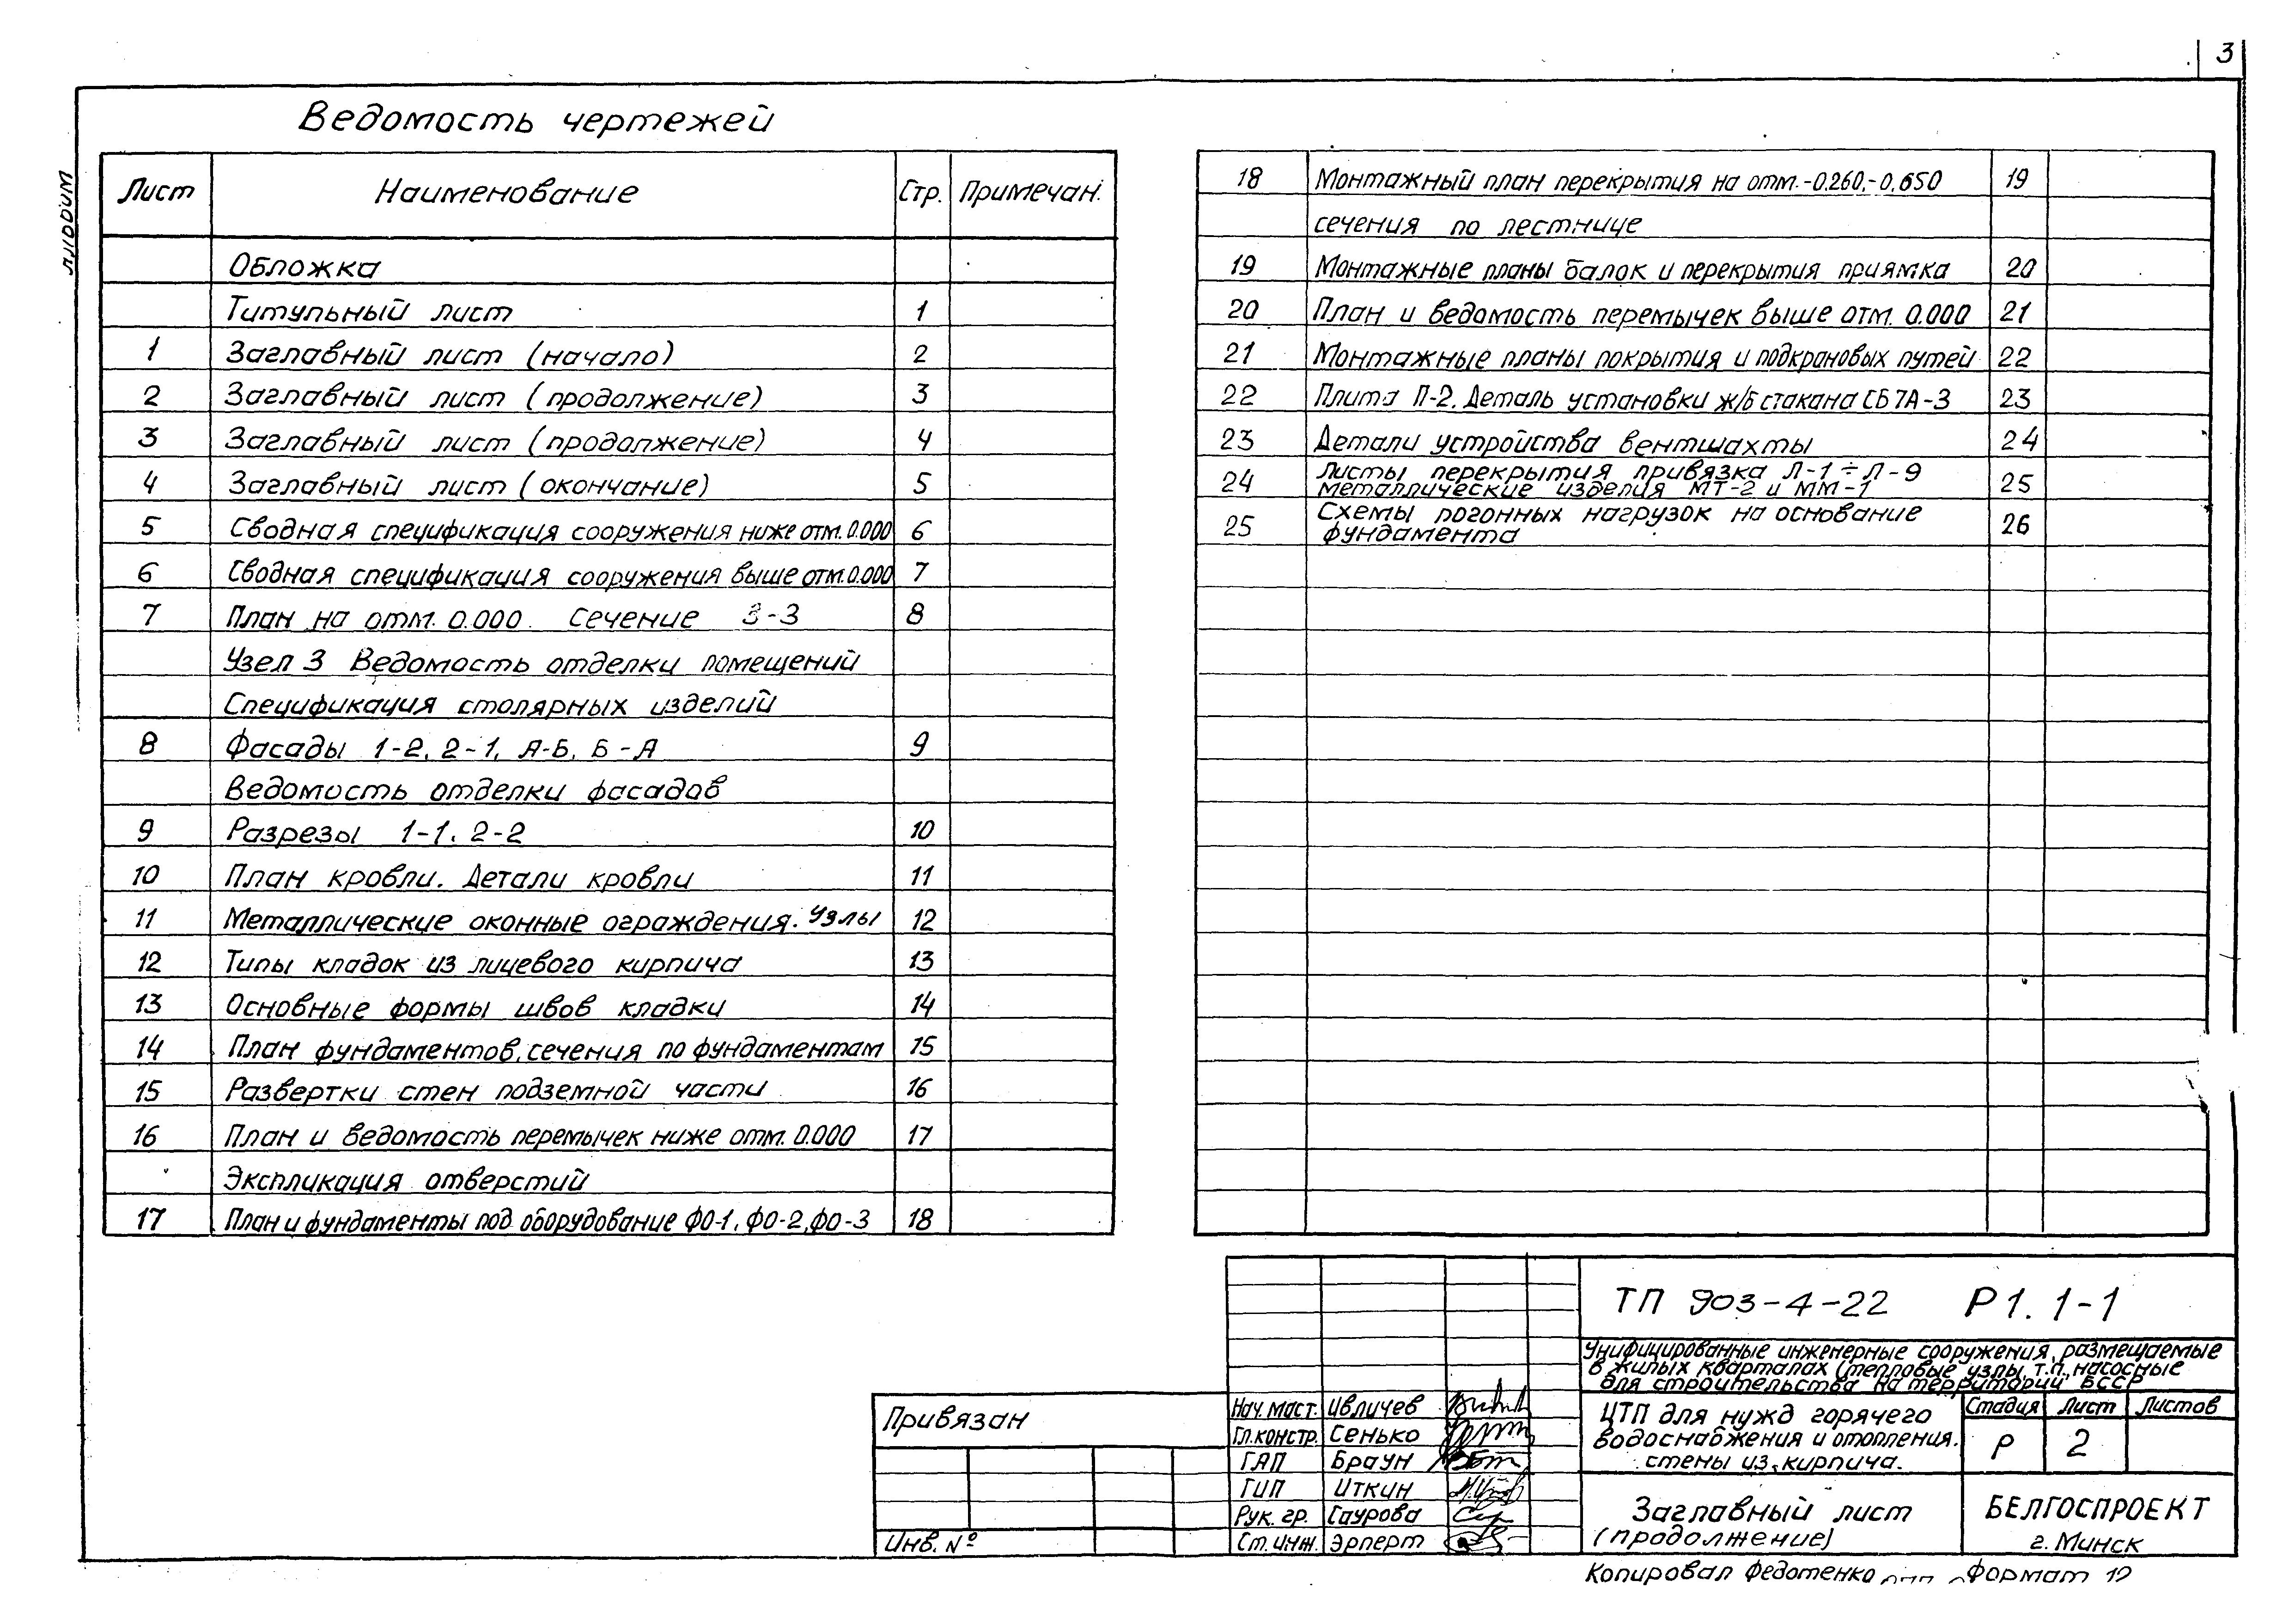 3
Ведомость чертежей
Лист Наименование Стр. Примечан.
Обложка
Титульный лист 1
1 Заглавный лист (начало) 2
2 Заглавный лист (продолжение) 3
3 Заглавный лист (продолжение) 4
4 Заглавный лист (окончание) 5
5 Сводная спецификация сооружения ниже отм. 0.000 6
6 Сводная спецификация сооружения выше отм. 0.000 7
7 План на отм. 0.000. Сечение 3-3 8
Узел 3 Ведомость отделки помещений
Спецификация столярных изделий
8 Фасады 1-2, 2-1, А-Б, Б-А 9
Ведомость отделки фасадов
9 Разрезы 1-1, 2-2 10
10 План кровли. Детали кровли 11
11 Металлические оконные ограждения. Узлы 12
12 Типы кладок из лицевого кирпича 13
13 Основные формы швов кладки 14
14 План фундаментов, сечения по фундаментам 15
15 Развертки стен подземной части 16
16 План и ведомость перемычек ниже отм. 0.000 17
Экспликация отверстий
17 План и фундаменты под оборудование ФО-1, ФО-2, ФО-3 18
18 Монтажный план перекрытия на отм. -0.260, -0.650 19
сечения по лестнице
19 Монтажные планы балок и перекрытия приямка 20
20 План и ведомость перемычек выше отм. 0.000 21
21 Монтажные планы покрытия и подкрановых путей 22
22 Плита П-2. Деталь установки ж/б стакана СБ7А-3 23
23 Детали устройства вентшахты 24
24 Листы перекрытия привязка Л-1÷Л-9 25
металлические изделия МТ-2 и ММ-1
25 Схемы погонных нагрузок на основание 26
фундамента
ТП 903-4-22 Р1.1-1
Унифицированные инженерные сооружения, размещаемые
в жилых кварталах (тепловые узлы, т.п., насосные
для строительства на территории БССР
Привязан
Инв. №
Нач. маст. Ивличев
Гл. констр. Сенько
ГАП Браун
ГИП Иткин
Рук. гр. Саурова
Ст. инж. Эрперт
ЦТП для нужд горячего
водоснабжения и отопления.
стены из кирпича.
Стадия Лист Листов
Р 2
Заглавный лист
(продолжение)
БЕЛГОСПРОЕКТ
г. Минск
Копировал Федотенко Формат 12